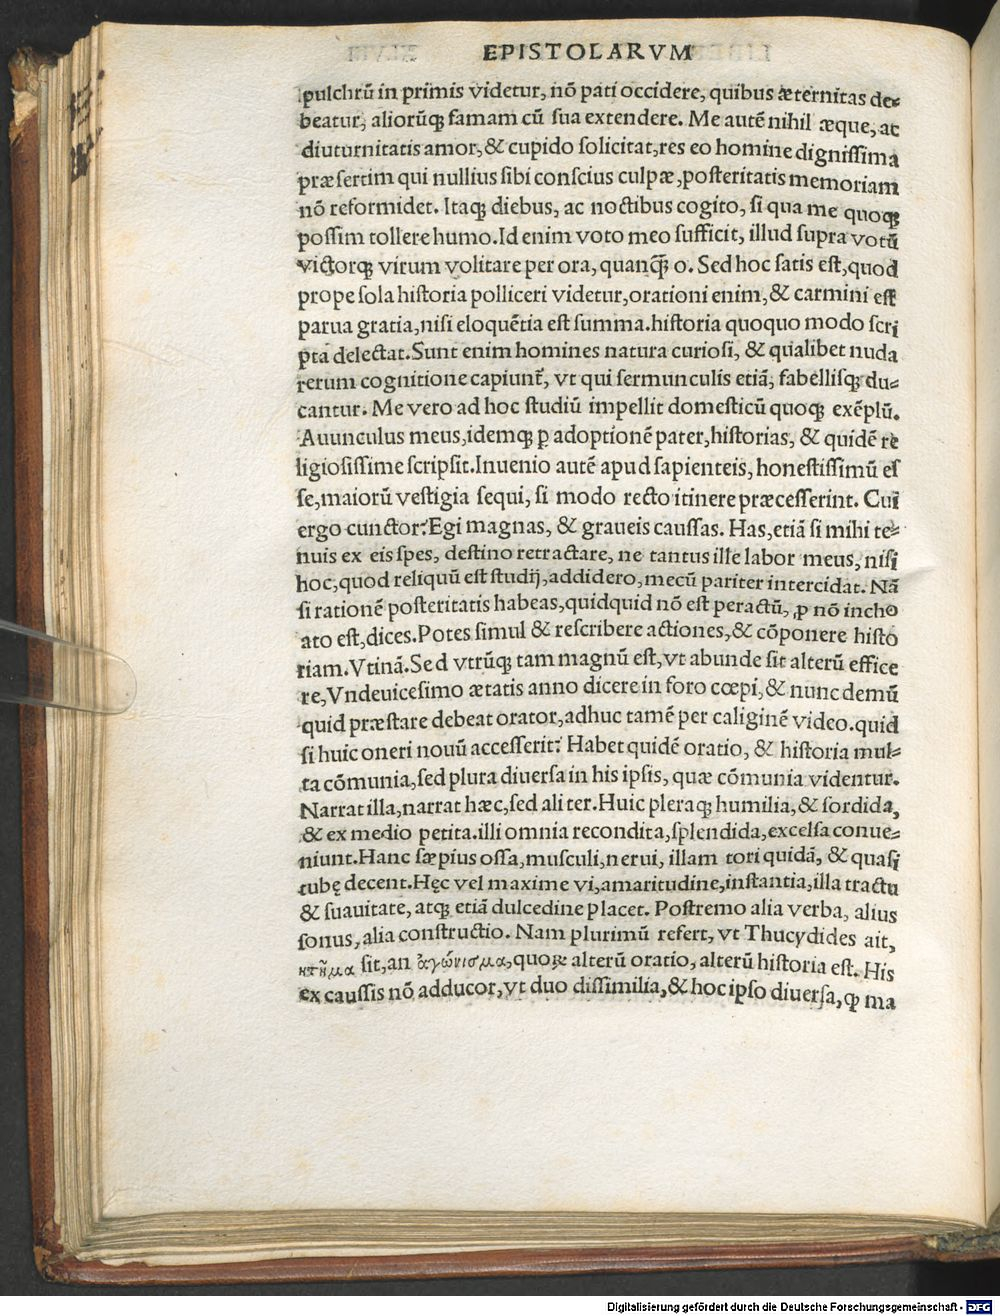 EPISTOLARVM
pulchrũ in primis videtur, nõ pati occidere, quibus æternitas de-
beatur, aliorũq; famam cũ sua extendere. Me autẽ nihil æque, ac
diuturnitatis amor, & cupido solicitat, res eo homine dignissima
præsertim qui nullius sibi conscius culpæ, posteritatis memoriam
nõ reformidet. Itaq; diebus, ac noctibus cogito, si qua me quoq;
possim tollere humo. Id enim voto meo sufficit, illud supra votũ
victorq; virum volitare per ora, quanq̃ o. Sed hoc satis est, quod
prope sola historia polliceri videtur, orationi enim, & carmini est
parua gratia, nisi eloquẽtia est summa. historia quoquo modo scri
pta delectat. Sunt enim homines natura curiosi, & qualibet nuda
rerum cognitione capiunt̃, vt qui sermunculis etiã, fabellisq; du-
cantur. Me vero ad hoc studiũ impellit domesticũ quoq; exẽplũ.
Auunculus meus, idemq; ꝑ adoptionẽ pater, historias, & quidẽ re
ligiosissime scripsit. Inuenio autẽ apud sapienteis, honestissimũ es
se, maiorũ vestigia sequi, si modo recto itinere præcesserint. Cur
ergo cunctor? Egi magnas, & graueis caussas. Has, etiã si mihi te-
nuis ex eis spes, destino retractare, ne tantus ille labor meus, nisi
hoc, quod reliquũ est studij, addidero, mecũ pariter intercidat. Nã
si rationẽ posteritatis habeas, quidquid nõ est peractũ, ꝓ nõ incho
ato est, dices. Potes simul & rescribere actiones, & cõponere histo
riam. Vtinã. Sed vtrũq; tam magnũ est, vt abunde sit alterũ effice
re, Vndeuicesimo ætatis anno dicere in foro cœpi, & nunc demũ
quid præstare debeat orator, adhuc tamẽ per caliginẽ video. quid
si huic oneri nouũ accesserit? Habet quidẽ oratio, & historia mul-
ta cõmunia, sed plura diuersa in his ipsis, quæ cõmunia videntur.
Narrat illa, narrat hæc, sed aliter. Huic pleraq; humilia, & sordida,
& ex medio petita. illi omnia recondita, splendida, excelsa conue-
niunt. Hanc sæpius ossa, musculi, nerui, illam tori quidã, & quasi
iubę decent. Hęc vel maxime vi, amaritudine, instantia, illa tractu
& suauitate, atq; etiã dulcedine placet. Postremo alia verba, alius
sonus, alia constructio. Nam plurimũ refert, vt Thucydides ait,
κτῆμα sit, an ἀγώνισμα, quoꝝ alterũ oratio, alterũ historia est. His
ex caussis nõ adducor, vt duo dissimilia, & hoc ipso diuersa, ꝙ ma
Digitalisierung gefördert durch die Deutsche Forschungsgemeinschaft - DFG